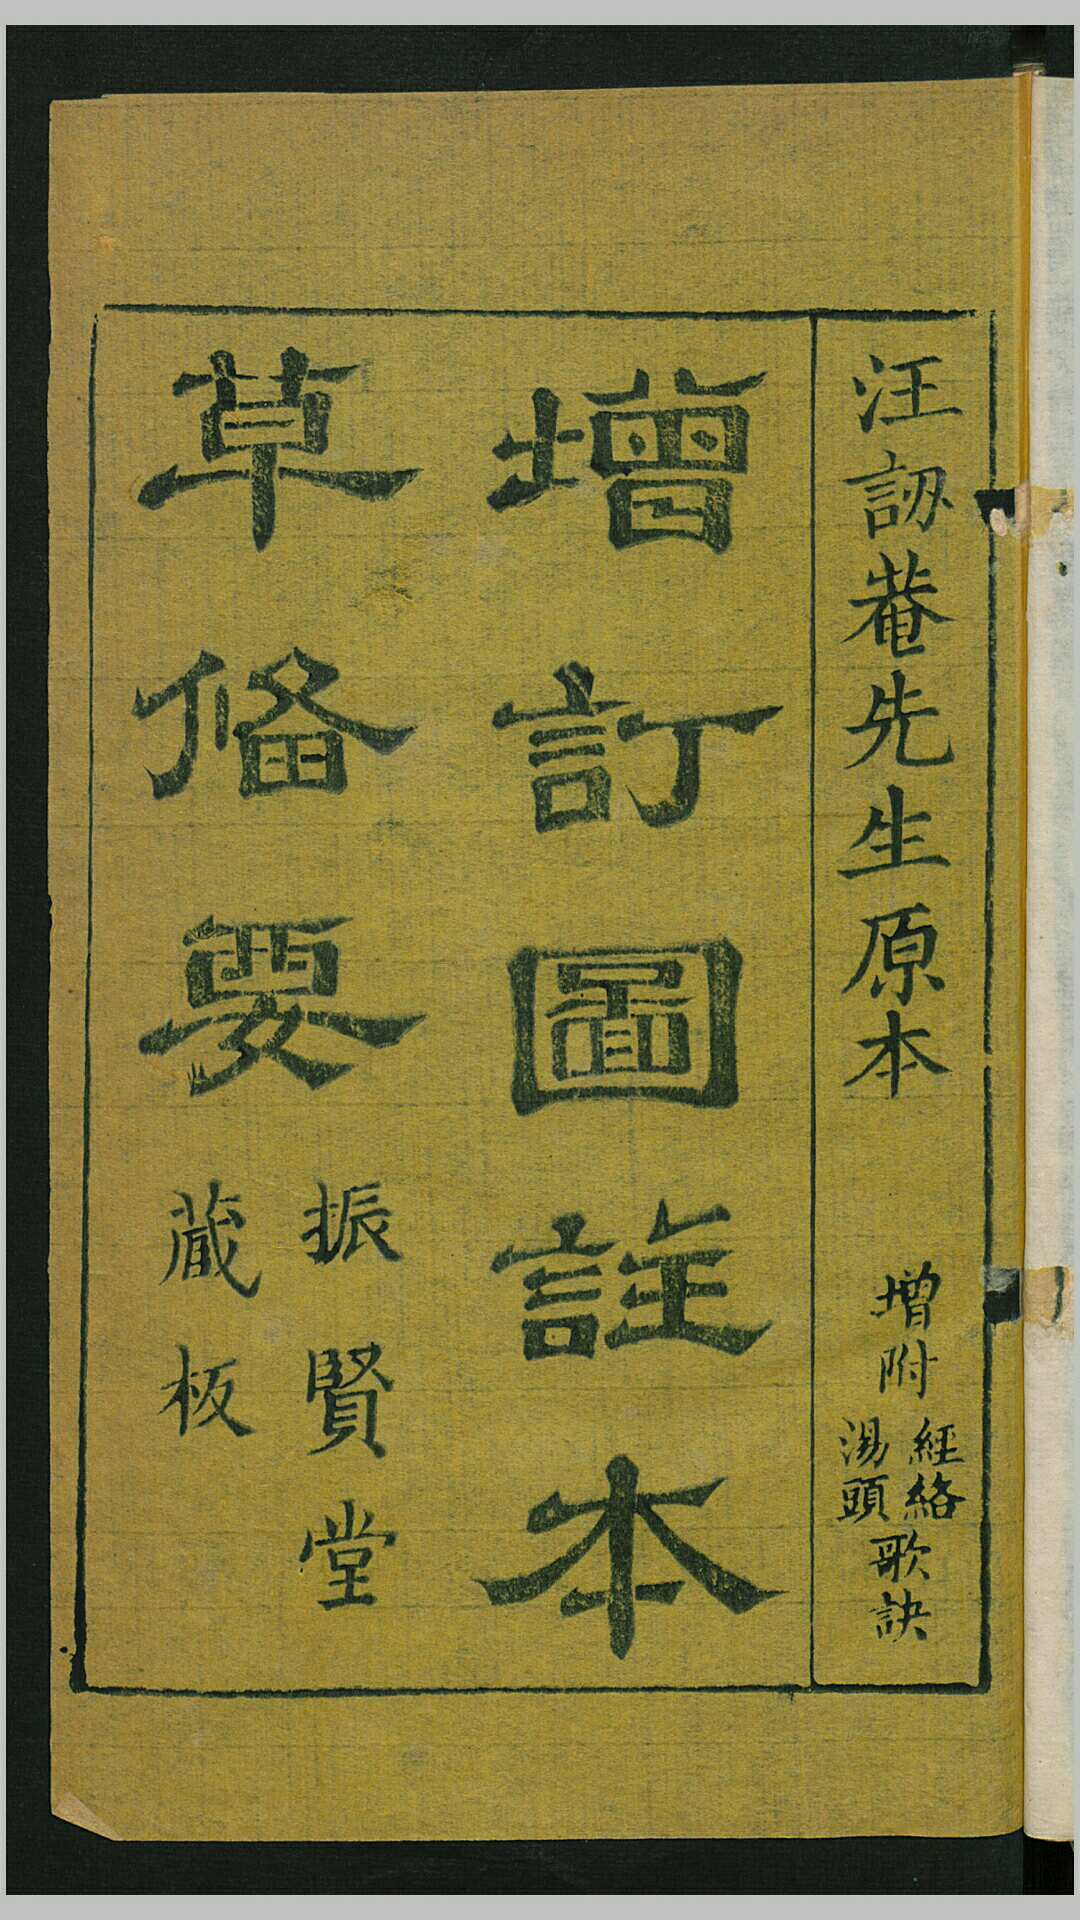 汪訒菴先生原本
增附
經絡
湯頭
歌訣
增訂圖註本
草俻要
振賢堂
蔵板